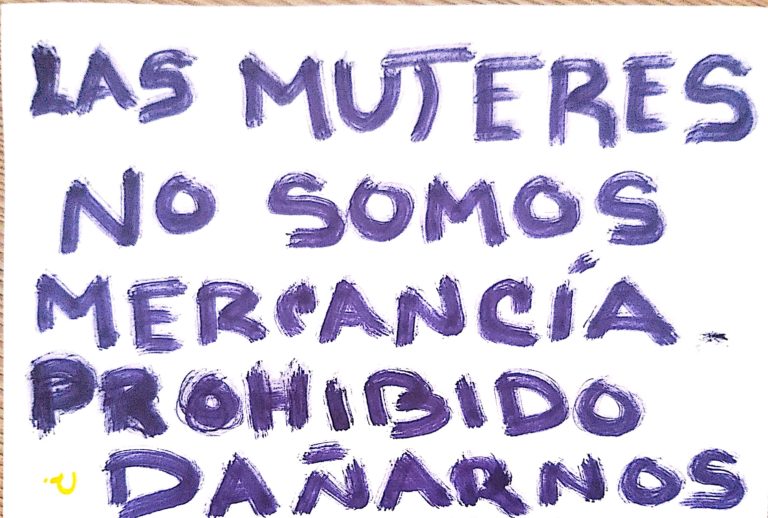 LAS MUJERES
NO SOMOS
MERCANCÍA -
PROHIBIDO
DAÑARNOS